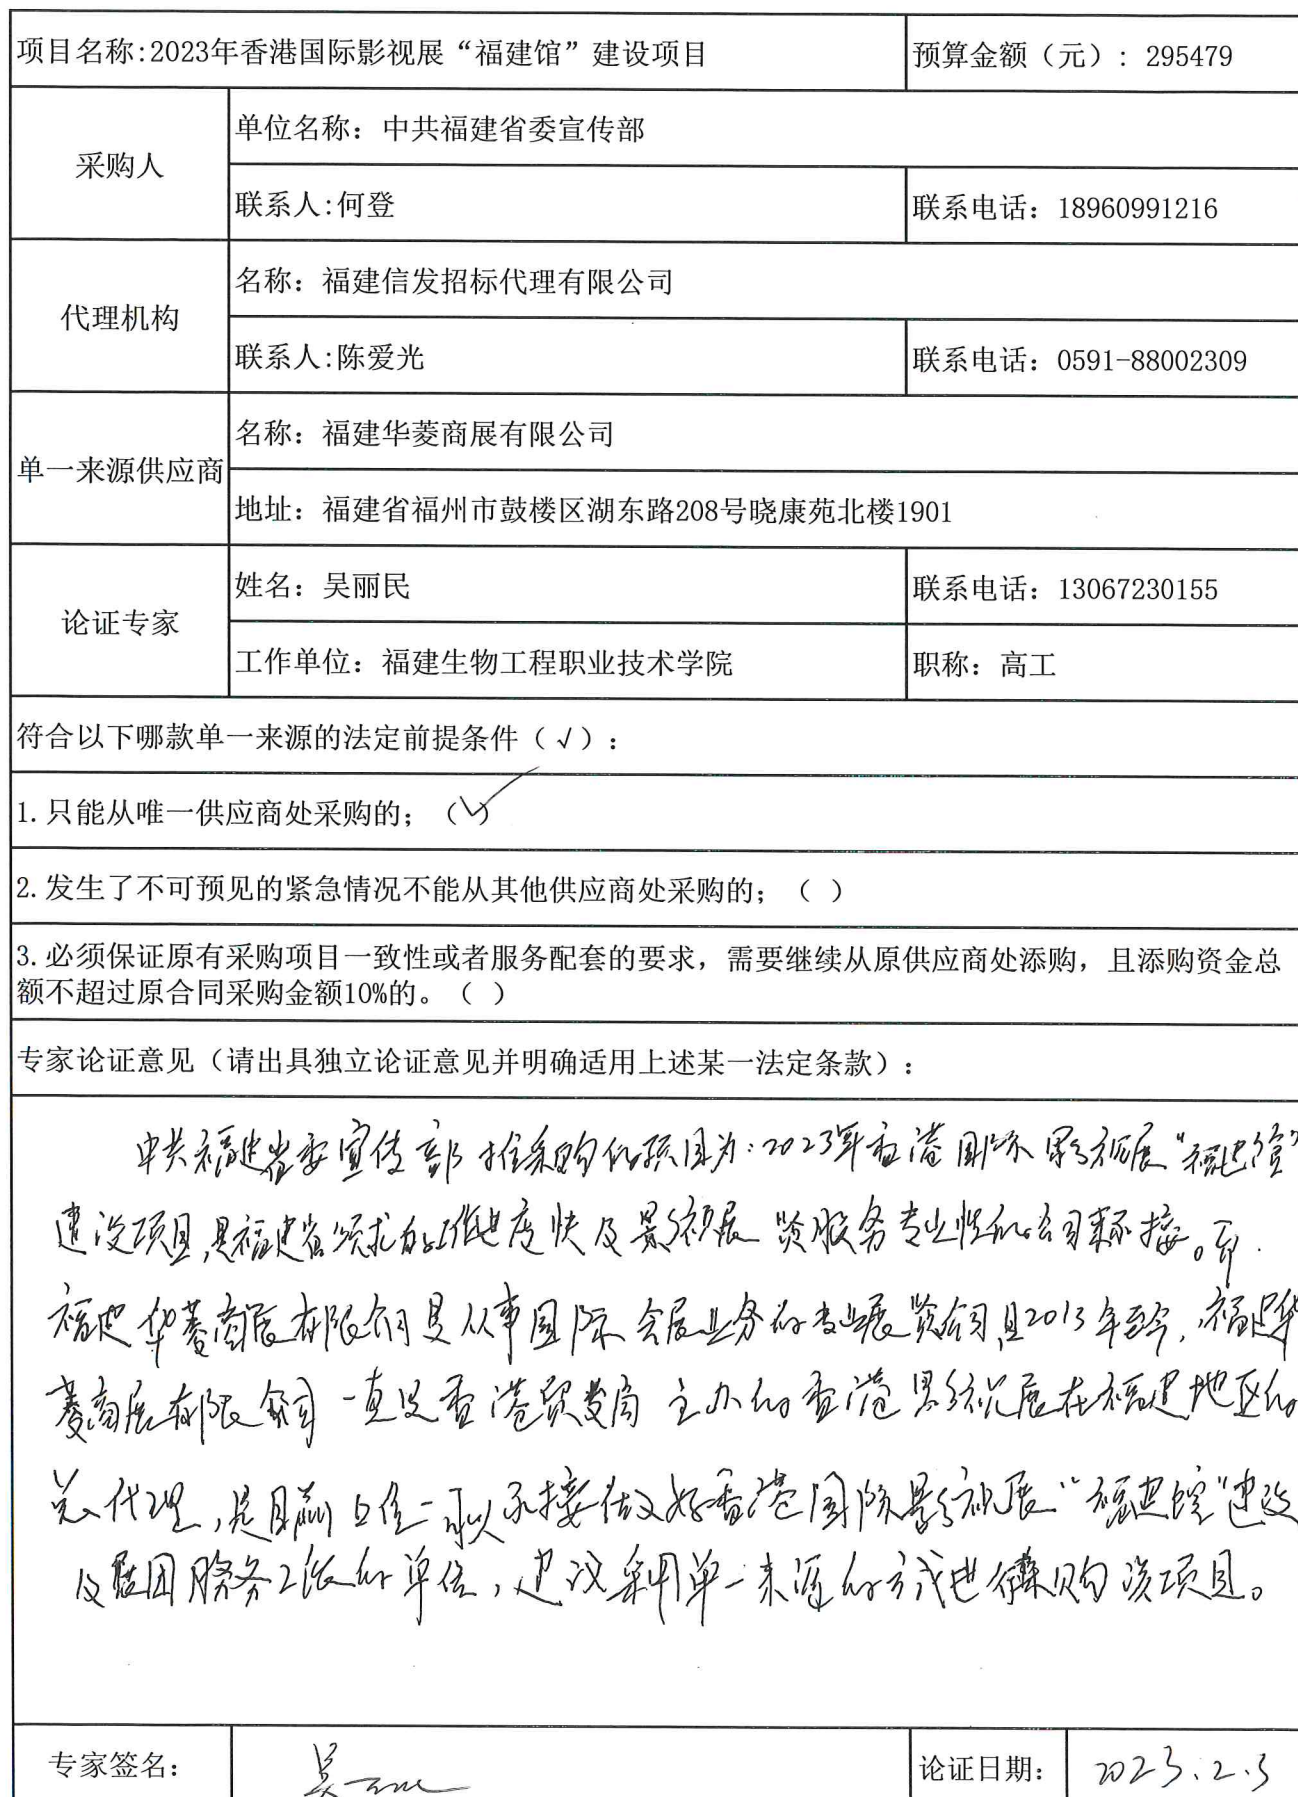 项目名称:2023年香港国际影视展“福建馆”建设项目
预算金额（元）: 295479
采购人
单位名称：中共福建省委宣传部
联系人:何登
联系电话：18960991216
代理机构
名称：福建信发招标代理有限公司
联系人:陈爱光
联系电话：0591-88002309
单一来源供应商
名称：福建华菱商展有限公司
地址：福建省福州市鼓楼区湖东路208号晓康苑北楼1901
论证专家
姓名：吴丽民
联系电话：13067230155
工作单位：福建生物工程职业技术学院
职称：高工
符合以下哪款单一来源的法定前提条件（√）：
1.只能从唯一供应商处采购的；（✓）
2.发生了不可预见的紧急情况不能从其他供应商处采购的；（ ）
3.必须保证原有采购项目一致性或者服务配套的要求，需要继续从原供应商处添购，且添购资金总
额不超过原合同采购金额10%的。（ ）
专家论证意见（请出具独立论证意见并明确适用上述某一法定条款）：
中共福建省委宣传部拟采购的项目为：2023年香港国际影视展“福建馆”
建设项目,是福建省 进度快及影视展览服务专业性的公司来承接。
福建华菱商展有限公司是从事国际会展业务的专业展览公司,且2013年至今,福建华
菱商展有限公司一直是香港贸发局主办的香港影视展在福建地区的
总代理,是目前 唯一可以承接做好香港国际影视展“福建馆”建设
及 团服务工作的单位,建议采用单一来源的方式进行采购该项目。
专家签名：
吴丽民
论证日期：
2023.2.3